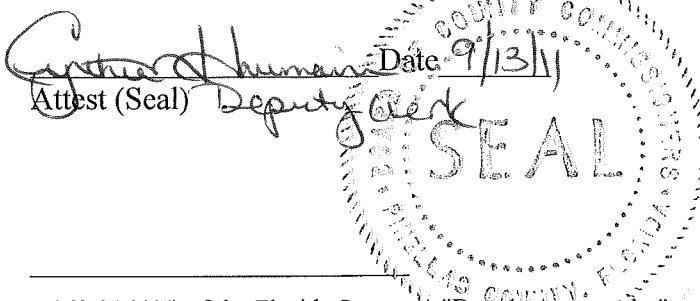 Cynthia Haumann Date 9/13/11
Attest (Seal) Deputy Clerk
COUNTY COMMISSIONERS
SEAL
PINELLAS COUNTY, FLORIDA